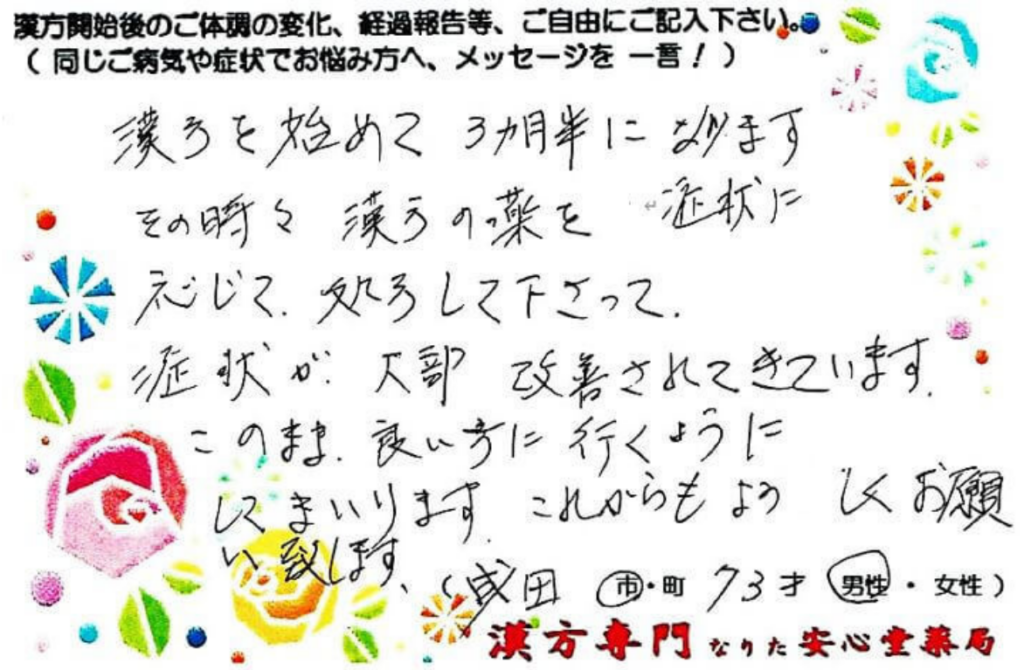 漢方開始後のご体調の変化、経過報告等、ご自由にご記入下さい。
（ 同じご病気や症状でお悩み方へ、メッセージを 一言！ ）
漢方を始めて 3ヵ月半に なります
その時々 漢方の薬を 症状に
応じて、処方して下さって、
症状が、大部 改善されてきています。
このまま、良い方に 行くように
してまいります。これからもよろしくお願
い致します、
（ 成田 市・町 73才 男性 ・ 女性 ）
漢方専門 なりた 安心堂薬局